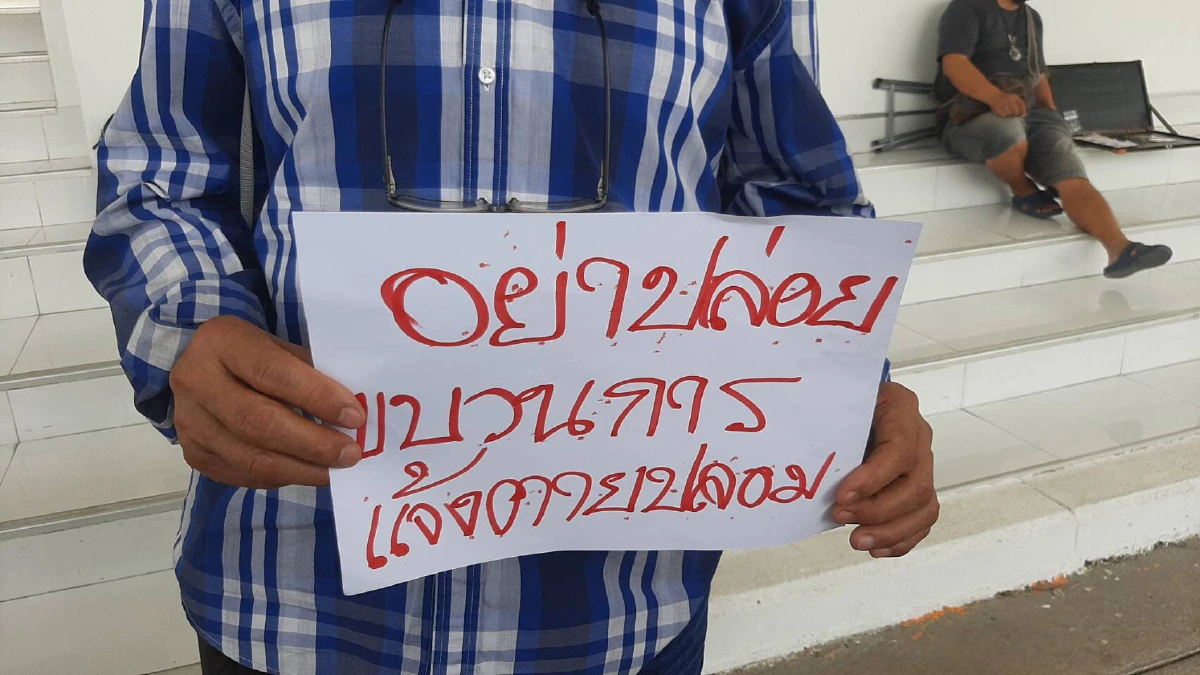 อย่าปล่อย
ขบวนการ
แจ้งตายปลอม